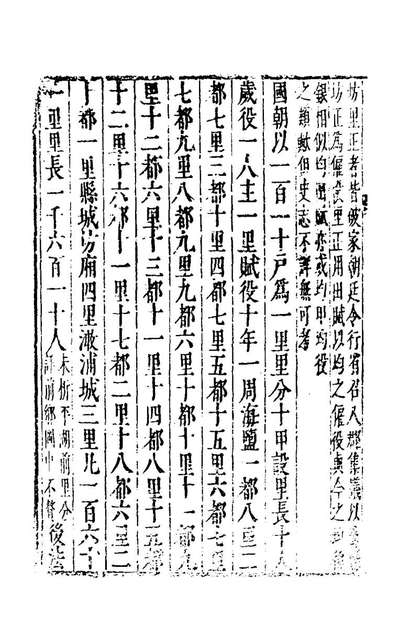 坊里正者皆破家朝廷令行省召八郡集議以
坊正為僱役里正用田賦以均之僱役與今之
銀相似均田賦亦或均甲均役
之類歟但史志不詳無可考
國朝以一百一十戶為一里里分十甲設里長十人
歲役一人主一里賦役十年一周海鹽一都八里二
都七里三都十里四都七里五都十五里六都七里
七都九里八都九里九都六里十都十里十一都九
里十二都六里十三都十一里十四都十八里十五都
十二里十六都十一里十七都二里十八都六里二
十都一里縣城坊廂四里澉浦城三里凡一百六十
一里里長一千六百一十人
未析平湖前里分
詳前鄉圖中不贅
後法